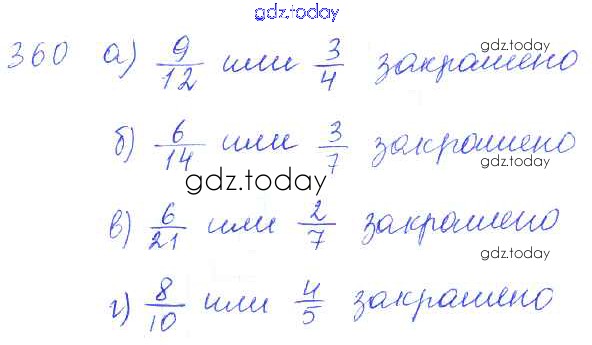 gdz.today
360 а) 9/12 или 3/4 закрашено
gdz.today
б) 6/14 или 3/7 закрашено
gdz.today
gdz.today
в) 6/21 или 2/7 закрашено
gdz.today
г) 8/10 или 4/5 закрашено
gdz.today